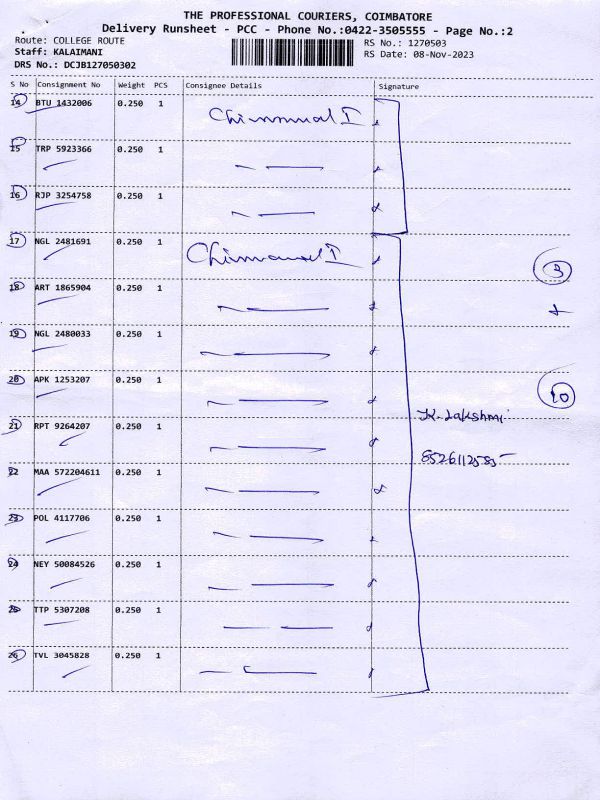 THE PROFESSIONAL COURIERS, COIMBATORE
Delivery Runsheet - PCC - Phone No.:0422-3505555 - Page No.:2
Route: COLLEGE ROUTE
RS No.: 1270503
Staff: KALAIMANI
RS Date: 08-Nov-2023
DRS No.: DCJB127050302
S No Consignment No Weight PCS Consignee Details Signature
14 BTU 1432006 0.250 1
15 TRP 5923366 0.250 1
16 RJP 3254758 0.250 1
17 NGL 2481691 0.250 1
3
18 ART 1865904 0.250 1
+
19 NGL 2480033 0.250 1
20 APK 1253207 0.250 1
10
K. Lakshmi
21 RPT 9264207 0.250 1
8526112585
22 MAA 572204611 0.250 1
23 POL 4117706 0.250 1
24 NEY 50084526 0.250 1
25 TTP 5307208 0.250 1
26 TVL 3045828 0.250 1